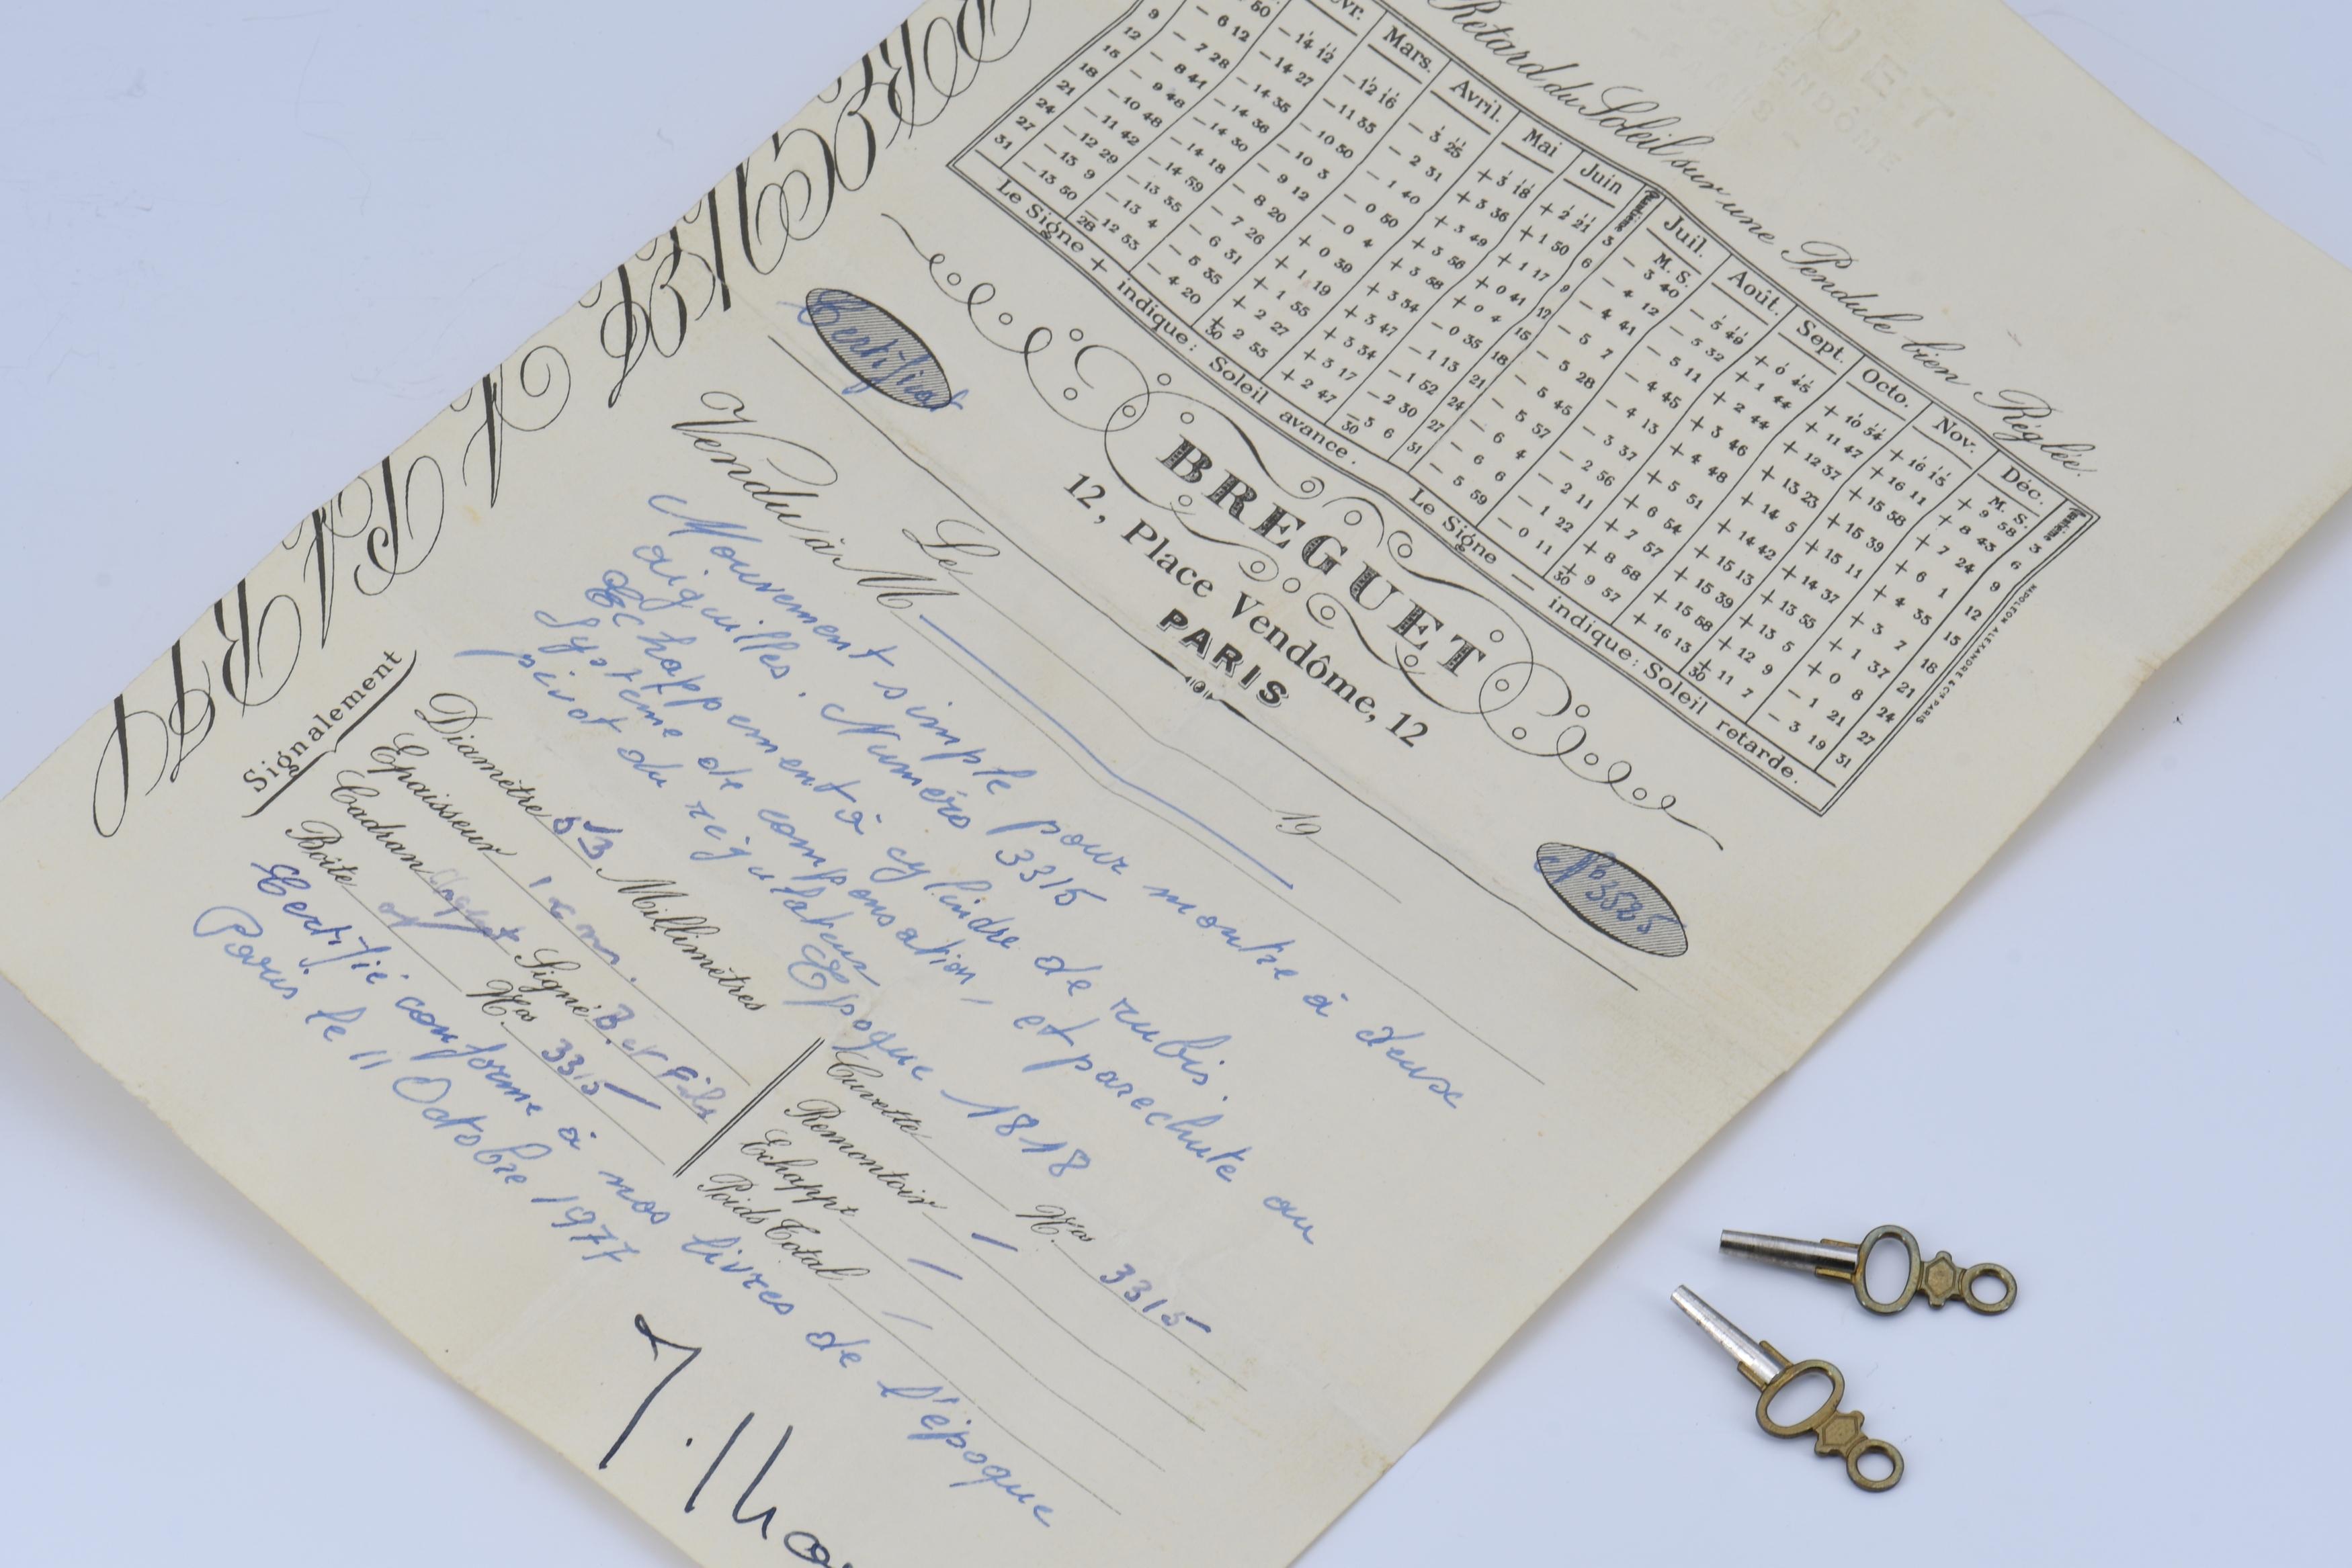 Retard du Soleil sur une Pendule bien Réglée.
Mars. Avril. Mai Juin Juil. Août. Sept. Octo. Nov. Déc.
M. S. M. S.
50 − 14 12 − 12 16 − 3 25 + 3 18 + 2 21 3 − 3 40 − 5 49 + 0 45 + 10 54 + 16 15 + 9 58 3
− 6 12 − 14 27 − 11 35 − 2 31 + 3 36 + 1 50 6 − 4 12 − 5 32 + 1 44 + 11 47 + 16 11 + 8 43 6
9 − 7 28 − 14 35 − 10 50 − 1 40 + 3 49 + 1 17 9 − 4 41 − 5 11 + 2 44 + 12 37 + 15 58 + 7 24 9
12 − 8 41 − 14 36 − 10 3 − 0 50 + 3 56 + 0 41 12 − 5 7 − 4 45 + 3 46 + 13 23 + 15 39 + 6 1 12
15 − 9 48 − 14 30 − 9 12 − 0 4 + 3 58 + 0 4 15 − 5 28 − 4 13 + 4 48 + 14 5 + 15 11 + 4 35 15
18 − 10 48 − 14 18 − 8 20 + 0 39 + 3 54 − 0 35 18 − 5 45 − 3 37 + 5 51 + 14 42 + 14 37 + 3 7 18
21 − 11 42 − 14 59 − 7 26 + 1 19 + 3 47 − 1 13 21 − 5 57 − 2 56 + 6 54 + 15 13 + 13 55 + 1 37 21
24 − 12 29 − 13 35 − 6 31 + 1 55 + 3 34 − 1 52 24 − 6 4 − 2 11 + 7 57 + 15 39 + 13 5 + 0 8 24
27 − 13 9 − 13 4 − 5 35 + 2 27 + 3 17 − 2 30 27 − 6 6 − 1 22 + 8 58 + 15 58 + 12 9 − 1 21 27
31 − 13 50 28 − 12 53 − 4 20 30 + 2 55 + 2 47 30 − 3 6 31 − 5 59 − 0 11 30 + 9 57 + 16 13 30 + 11 7 − 3 19 31
Le Signe + indique: Soleil avance. Le Signe − indique: Soleil retarde.
NAPOLÉON ALEXANDRE & Cie PARIS
BREGUET
12, Place Vendôme, 12
PARIS
Certificat
No 3525
Le 19
Vendu à M
Mouvement simple pour montre à deux
aiguilles. Numéro 3315
Echappement à cylindre de rubis.
Système de compensation, et parechute au
pivot du régulateur
Epoque 1818
Signalement
Diamètre 53 Millimètres
Epaisseur 1 cm.
Cadran argent Signé B. et Fils
Boîte or Nos 3315
Cuvette Nos 3315
Remontoir —
Echappt —
Poids Total —
Certifié conforme à nos livres de l'époque
Paris le 11 Octobre 1977